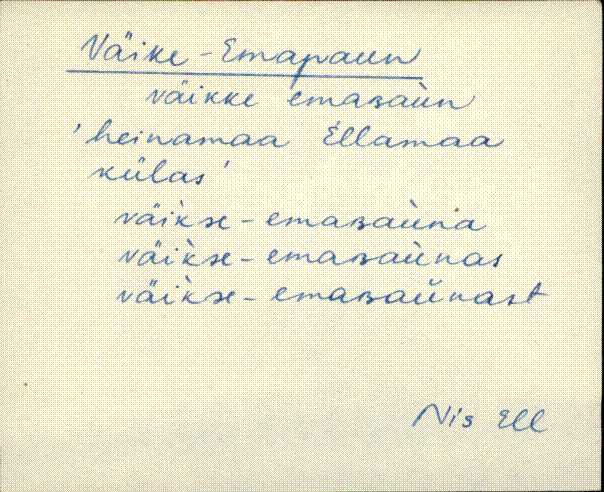 Väike-Emapaun
väikke emaʙaùn
'heinamaa Ellamaa
külas'
väìkse-emaʙaùna
väìkse-emaʙaùnas
väìkse-emaʙaùnast
Nis Ell